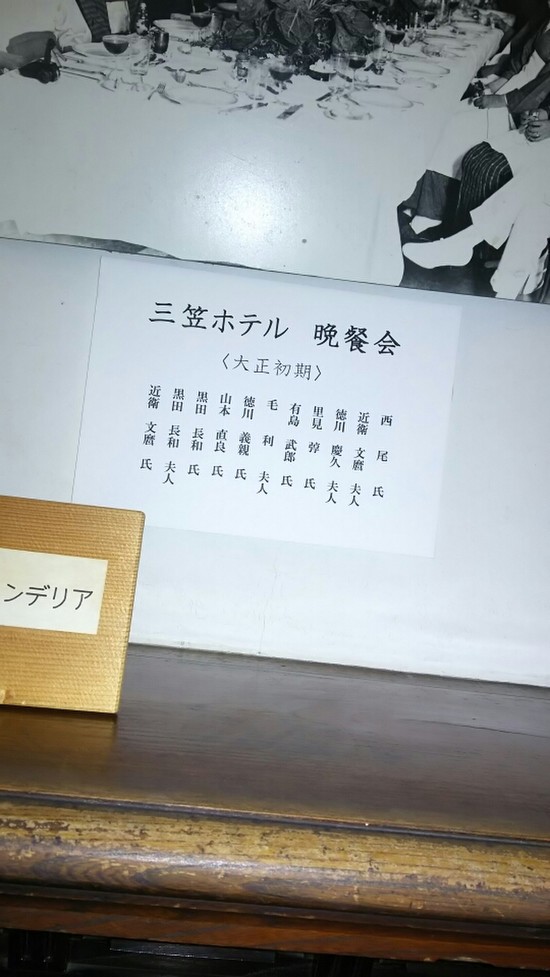 三笠ホテル 晩餐会
〈大正初期〉
西尾 氏
近衛 文麿 夫人
徳川 慶久 夫人
里見 弴 氏
有島 武郎 氏
毛利 夫人
徳川 義親 氏
山本 直良 氏
黒田 長和 氏
黒田 長和 夫人
近衛 文麿 氏
ンデリア